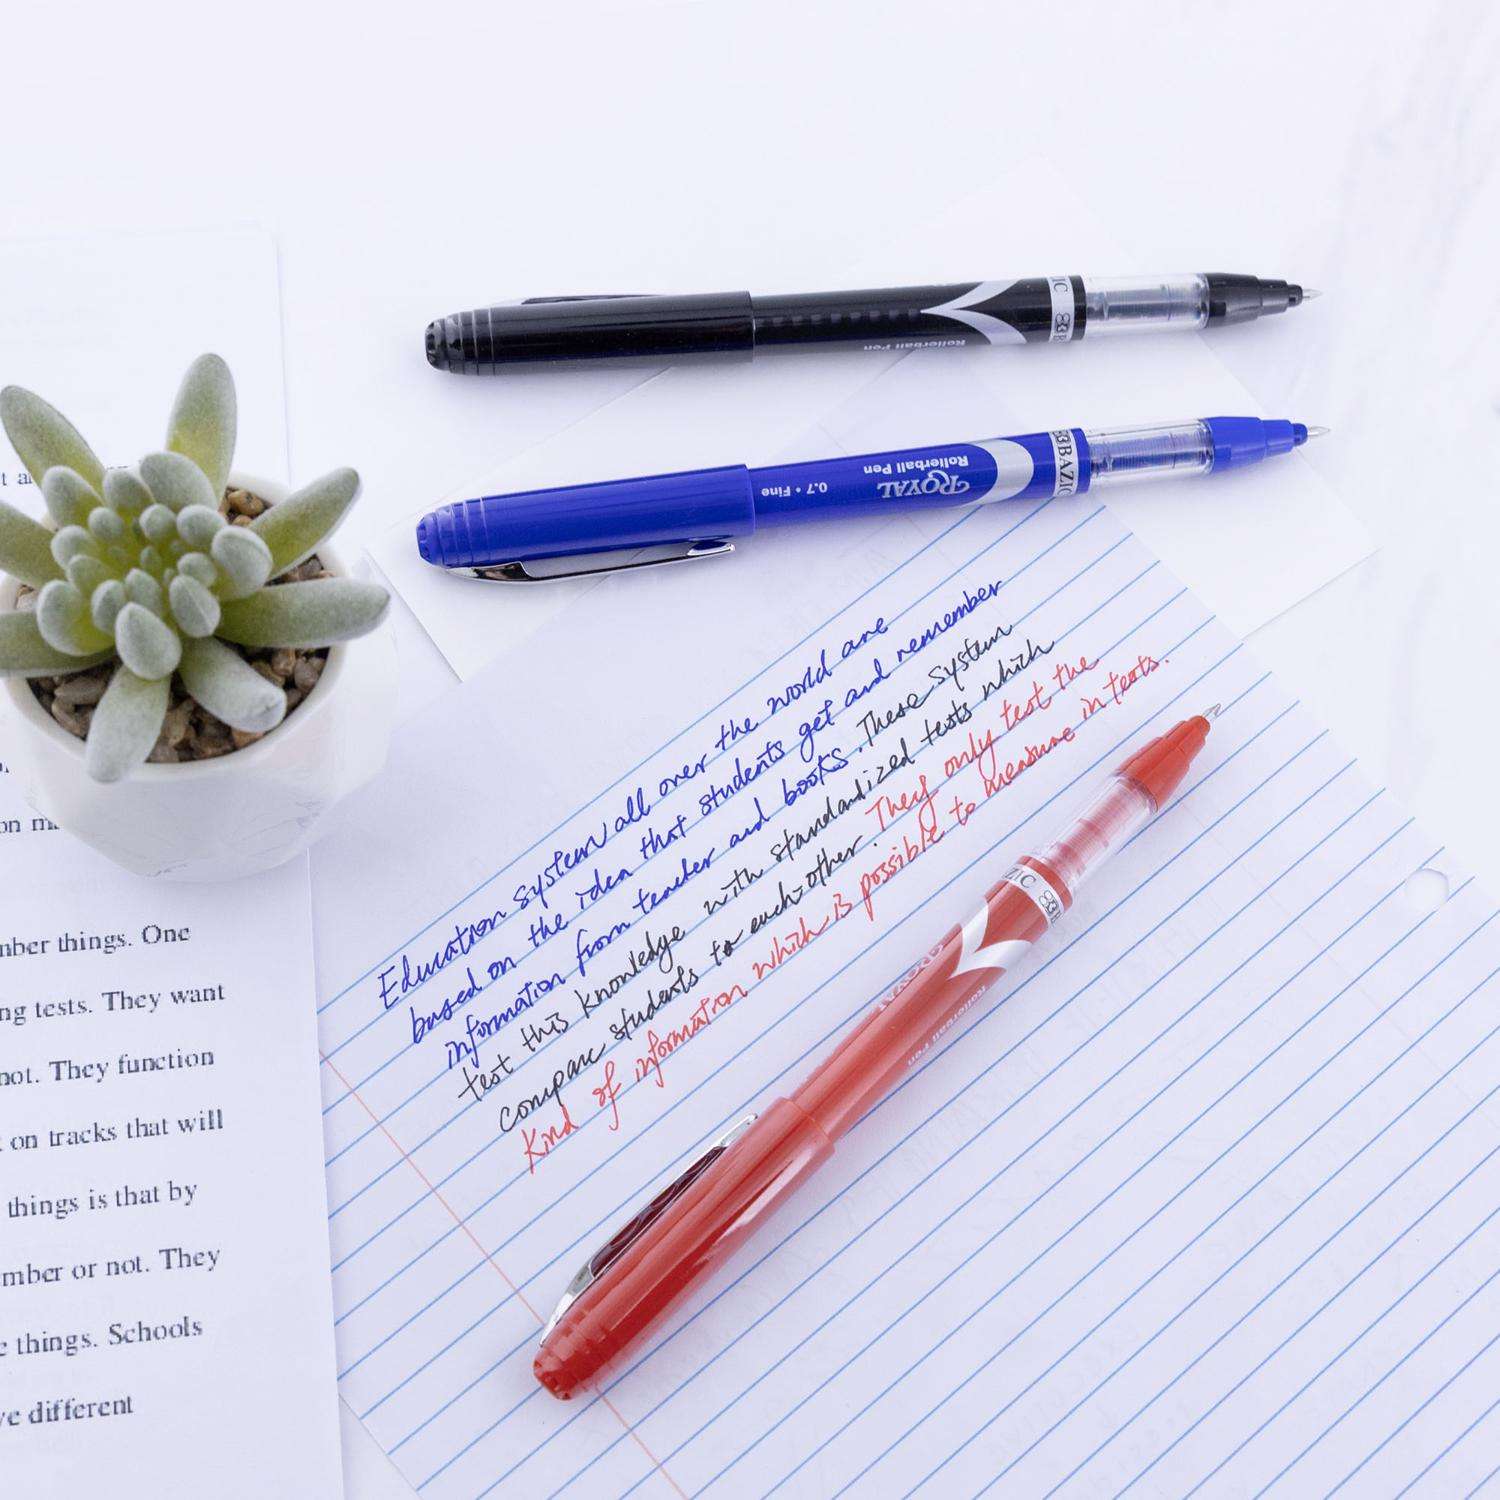 BAZIC
Rollerball Pen
BAZIC
ROYAL
Rollerball Pen
0.7 • Fine
Education system all over the world are
based on the idea that students get and remember
information from teacher and books. These system
test this knowledge with standardized tests which
compare students to each other. They only test the
kind of information which is possible to measure in tests.
ZIC
ROYAL
Rollerball Pen
things. One
tests. They want
not. They function
on tracks that will
things is that by
or not. They
things. Schools
different